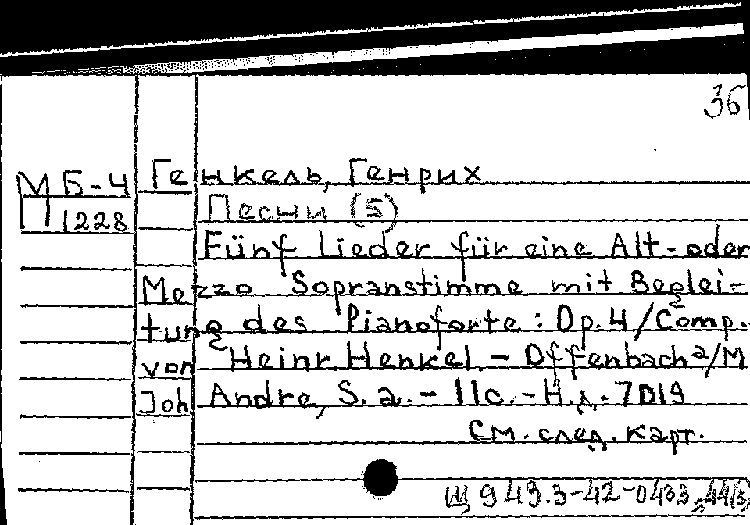 36
МБ-4 Генкель, Генрих
П 1228 Песни (5)
Fünf Lieder für eine Alt-oder
Mezzo Sopranstimme mit Beglei-
tung des Pianoforte : Op. 4 / Comp.
von Heinr. Henkel. - Offenbach a/M
Joh Andre, S. a. - 11c. - Н.д. 7019
См. след. карт.
Щ 949.3-42-0433